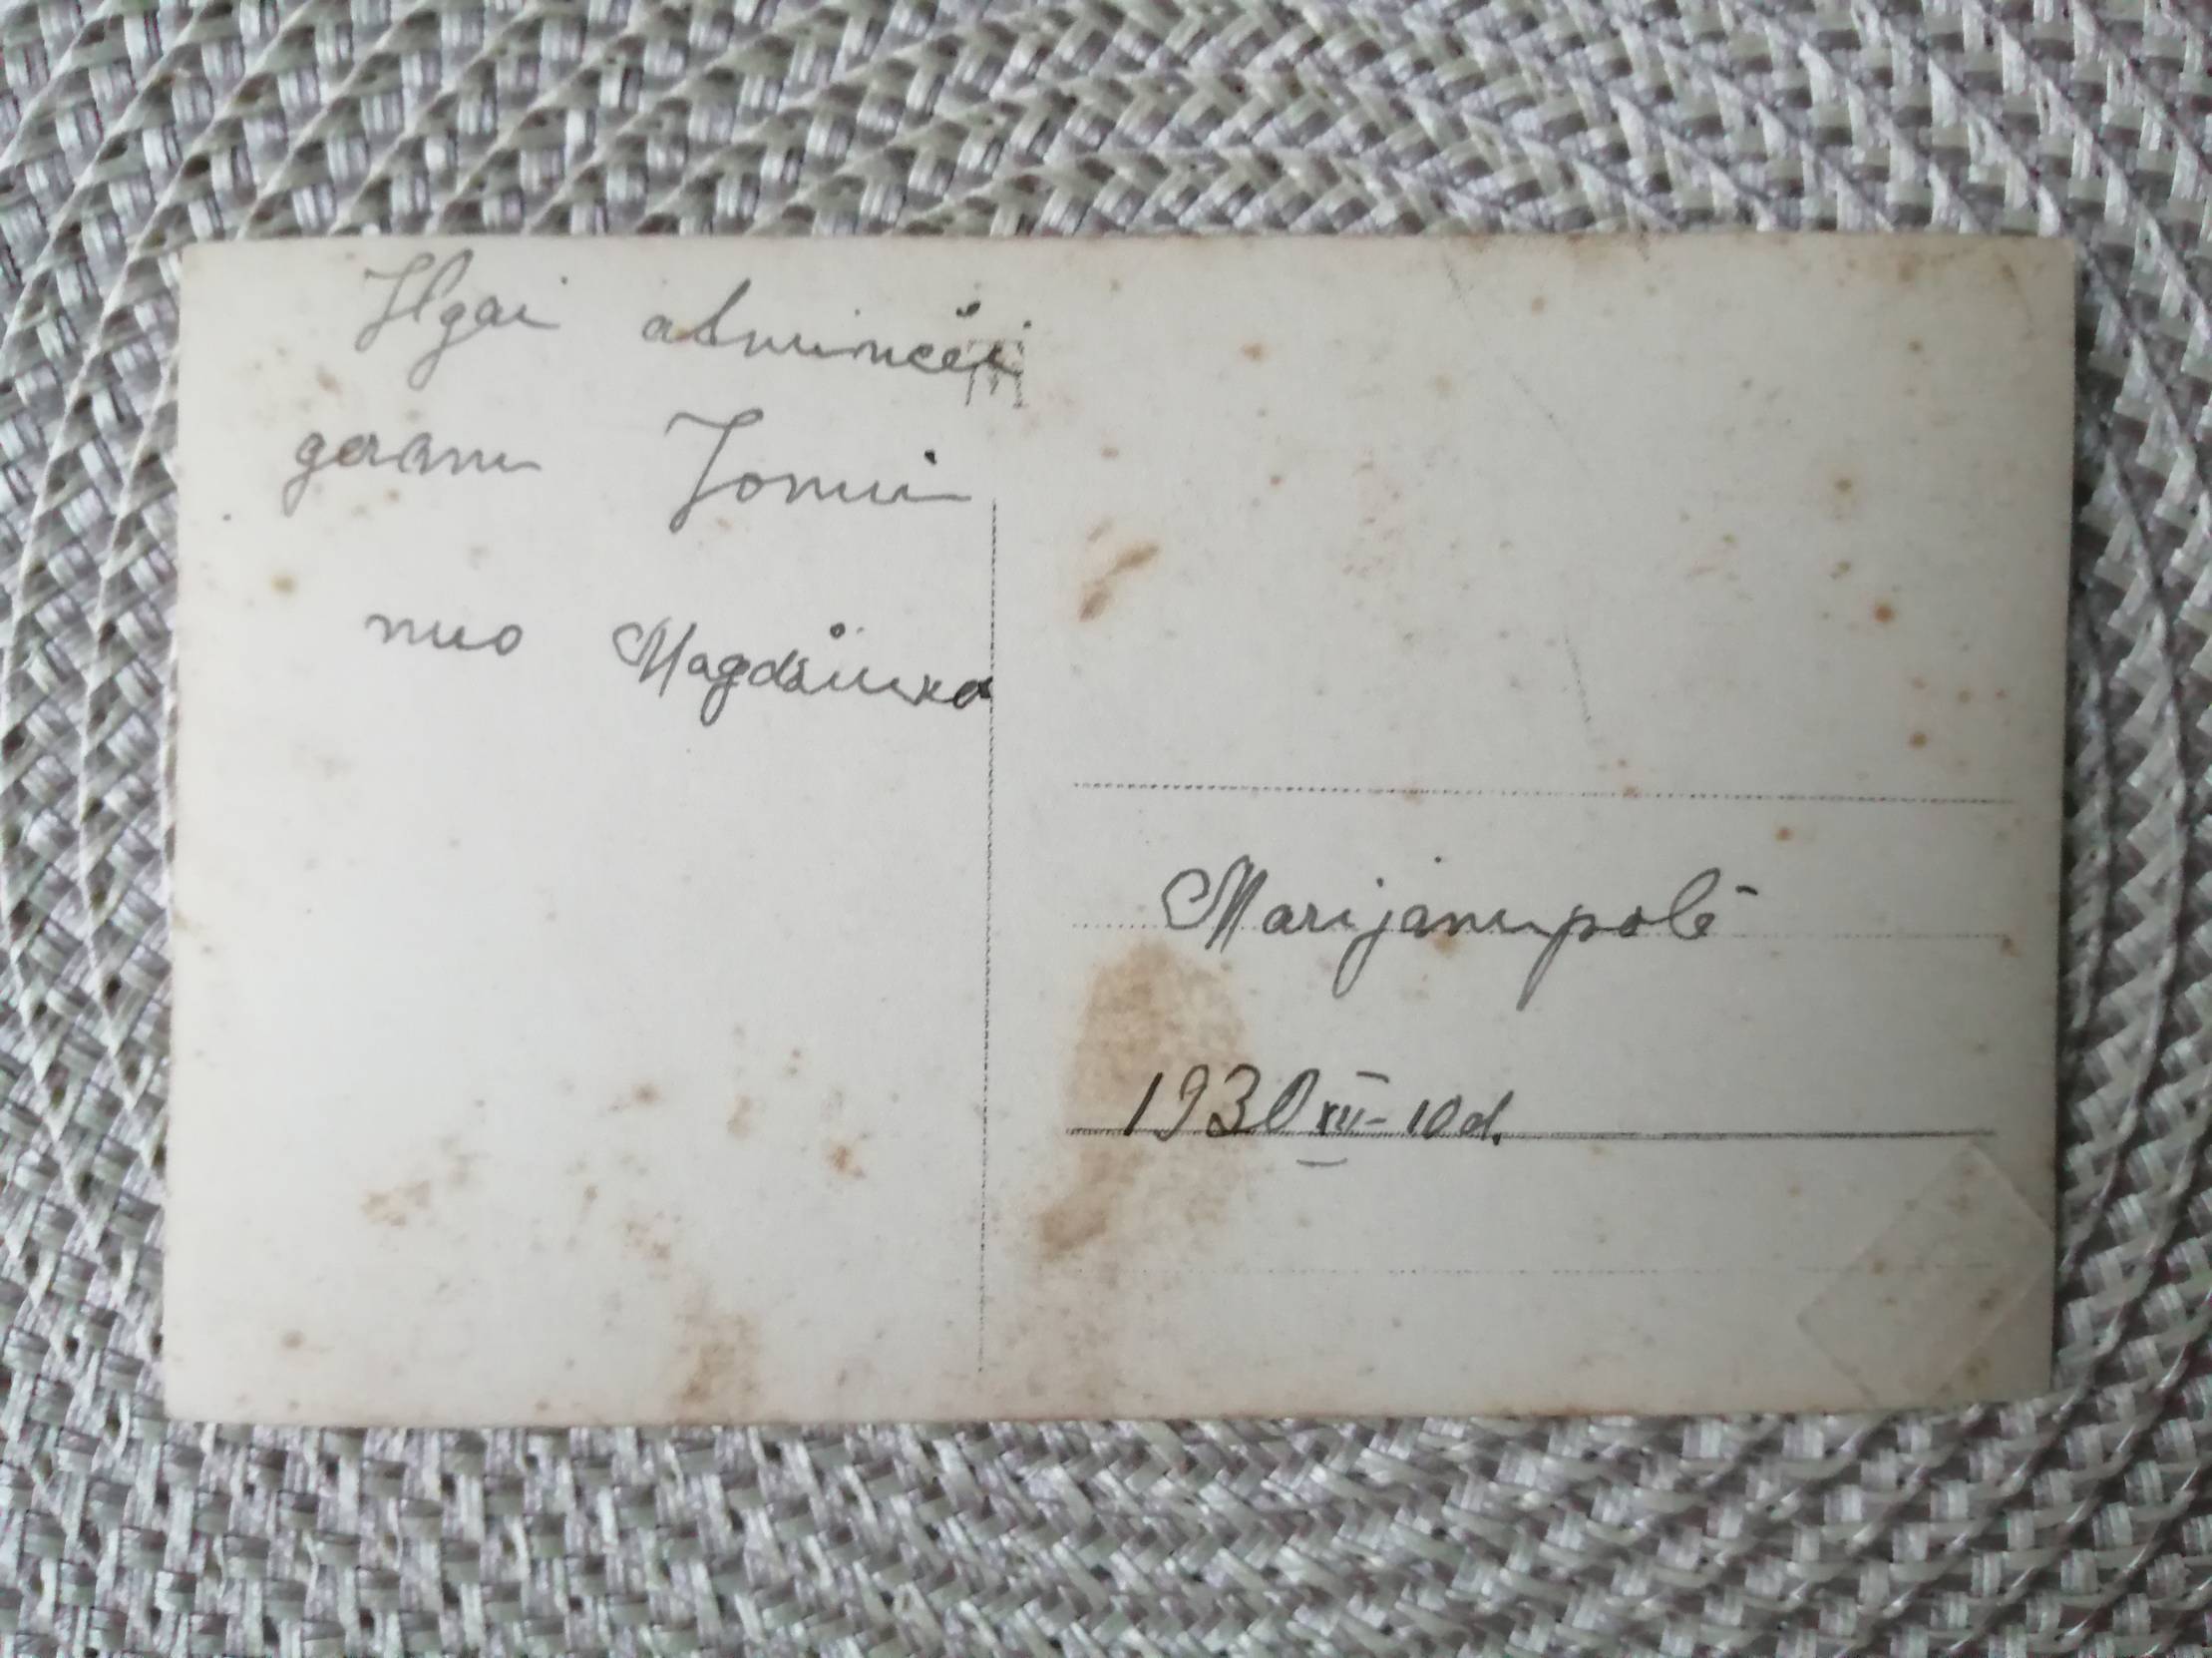 Ilgai atminčei
geram Jomui
nuo Magdšiuka
Marijampolė
1930 XII – 10 d.